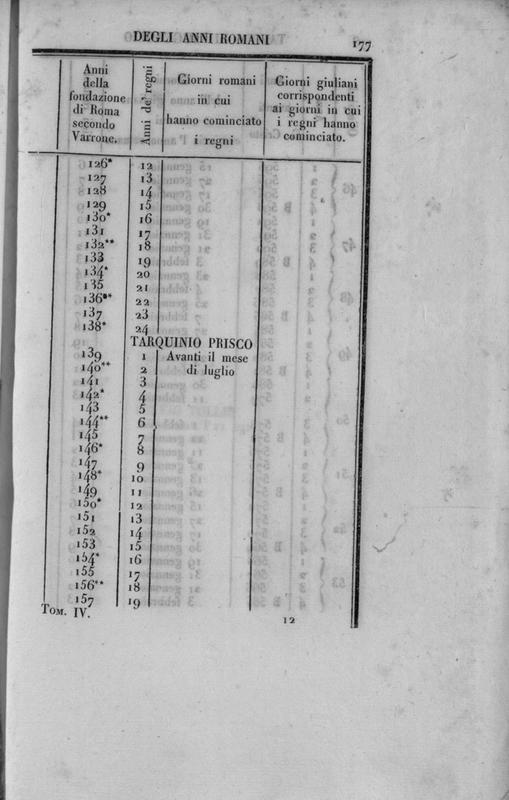 DEGLI ANNI ROMANI 177
Anni della fondazione di Roma secondo Varrone. Anni de' regni Giorni romani in cui hanno cominciato i regni Giorni giuliani corrispondenti ai giorni in cui i regni hanno cominciato.
126* 12
127 13
128 14
129 15
130* 16
131 17
132** 18
133 19
134* 20
135 21
136** 22
137 23
138* 24
TARQUINIO PRISCO
139 1 Avanti il mese
140** 2 di luglio
141 3
142* 4
143 5
144** 6
145 7
146* 8
147 9
148* 10
149 11
150* 12
151 13
152 14
153 15
154* 16
155 17
156** 18
157 19
TOM. IV. 12